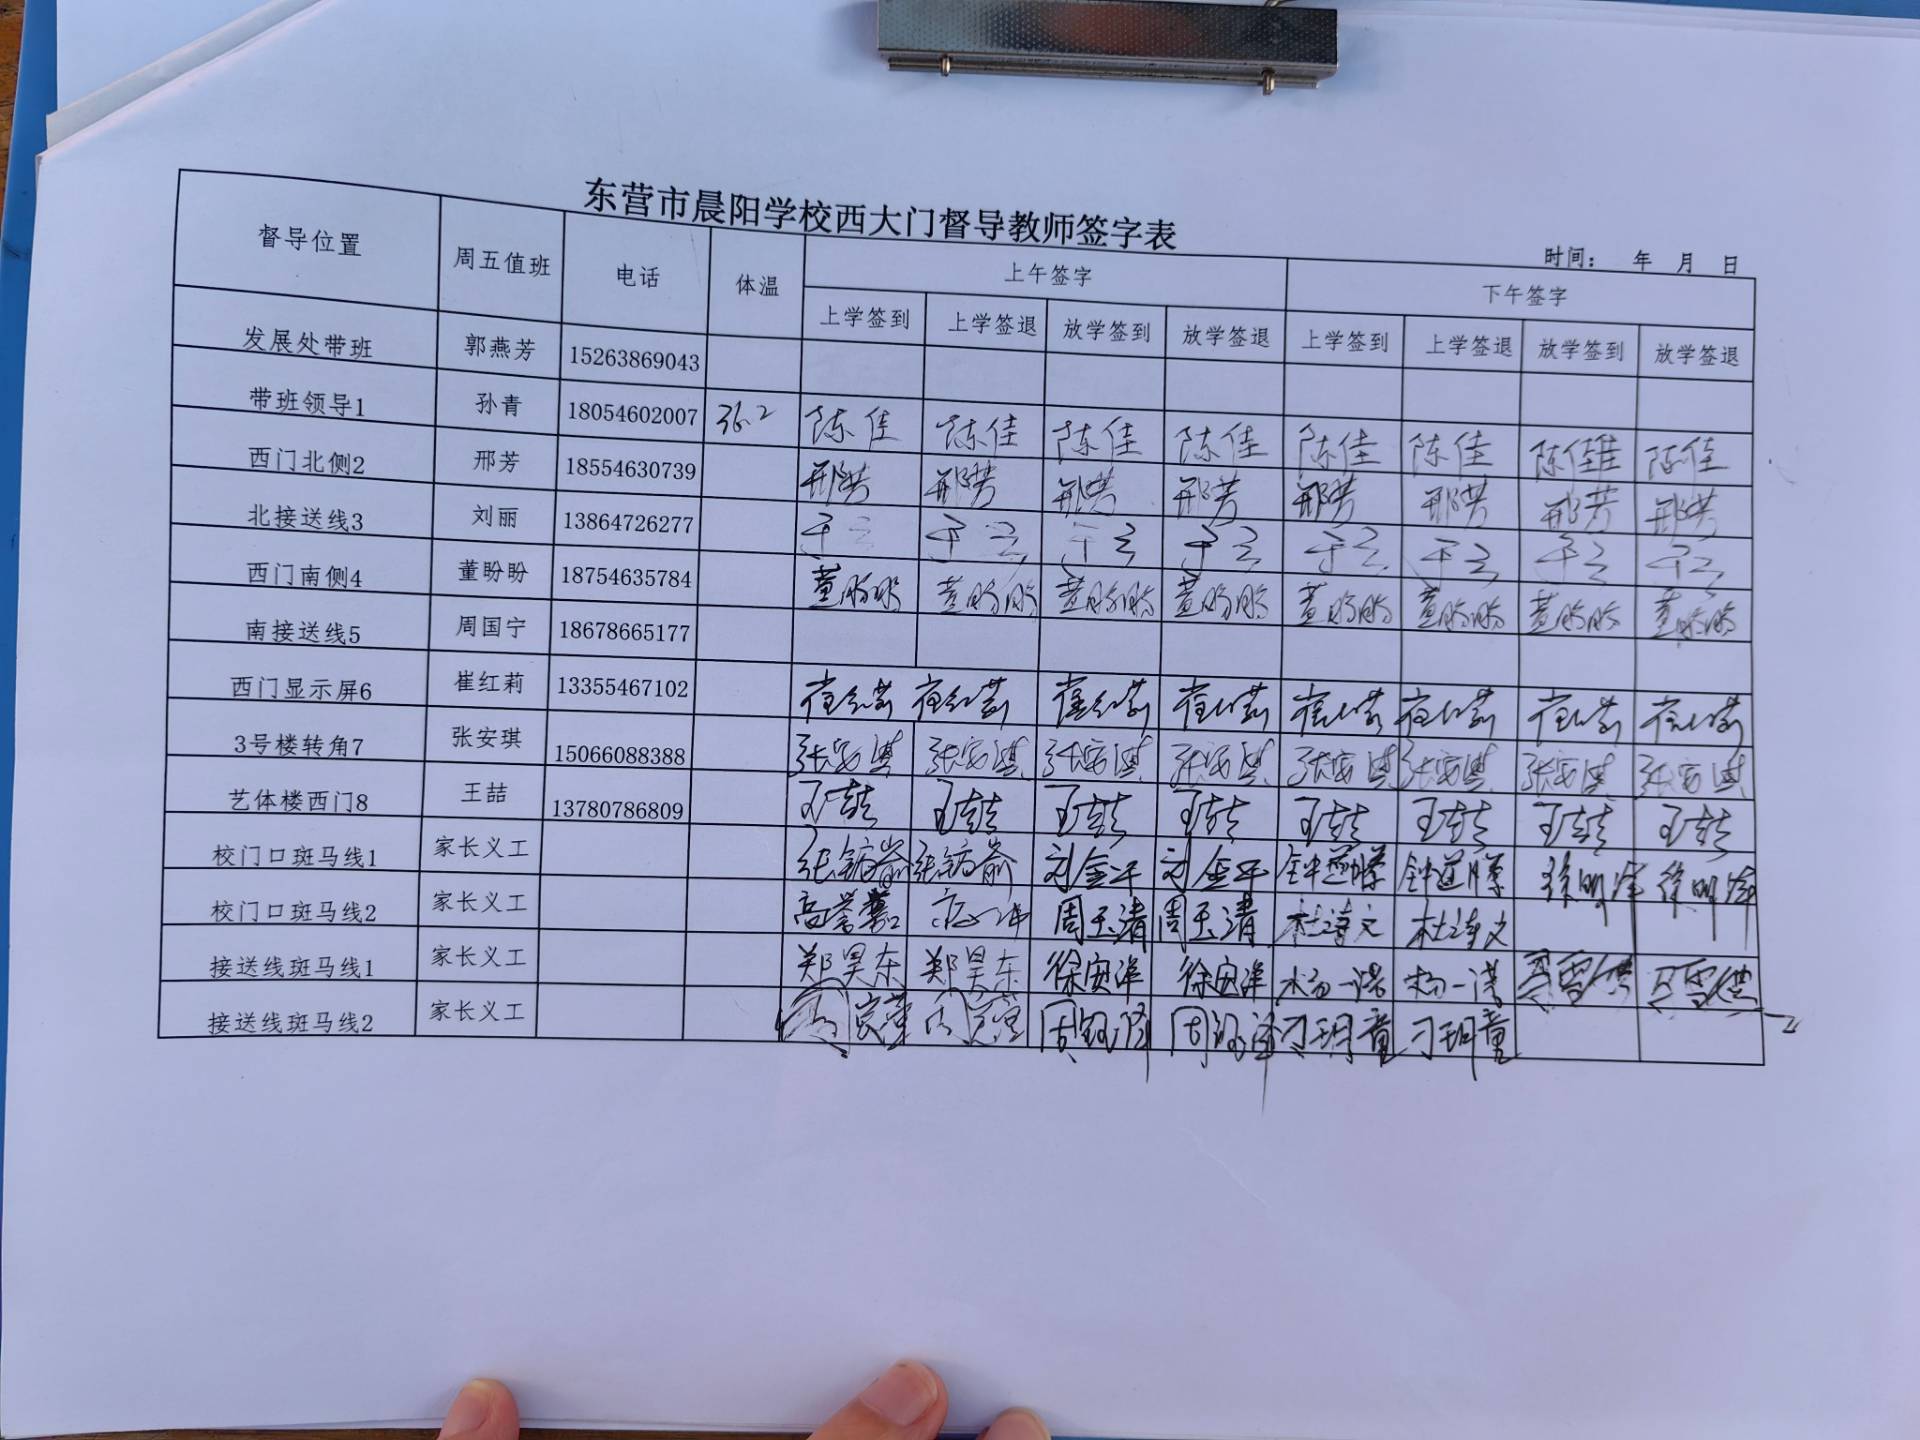 东营市晨阳学校西大门督导教师签字表
时间： 年 月 日
督导位置 周五值班 电话 体温 上午签字 下午签字
上学签到 上学签退 放学签到 放学签退 上学签到 上学签退 放学签到 放学签退
发展处带班 郭燕芳 15263869043
带班领导1 孙青 18054602007 36.2 陈佳 陈佳 陈佳 陈佳 陈佳 陈佳 陈佳 陈佳
西门北侧2 邢芳 18554630739 邢芳 邢芳 邢芳 邢芳 邢芳 邢芳 邢芳 邢芳
北接送线3 刘丽 13864726277
西门南侧4 董盼盼 18754635784 董盼盼 董盼盼 董盼盼 董盼盼 董盼盼 董盼盼 董盼盼 董盼盼
南接送线5 周国宁 18678665177
西门显示屏6 崔红莉 13355467102 崔红莉 崔红莉 崔红莉 崔红莉 崔红莉 崔红莉 崔红莉 崔红莉
3号楼转角7 张安琪 15066088388 张安琪 张安琪 张安琪 张安琪 张安琪 张安琪 张安琪 张安琪
艺体楼西门8 王喆 13780786809 王喆 王喆 王喆 王喆 王喆 王喆 王喆 王喆
校门口斑马线1 家长义工 刘金平 刘金平 徐明泽 徐明泽
校门口斑马线2 家长义工 周玉清 周玉清 杜诗文 杜诗文
接送线斑马线1 家长义工 郑昊东 郑昊东 徐安泽 徐安泽 杨一诺 杨一诺
接送线斑马线2 家长义工 刁玥童 刁玥童